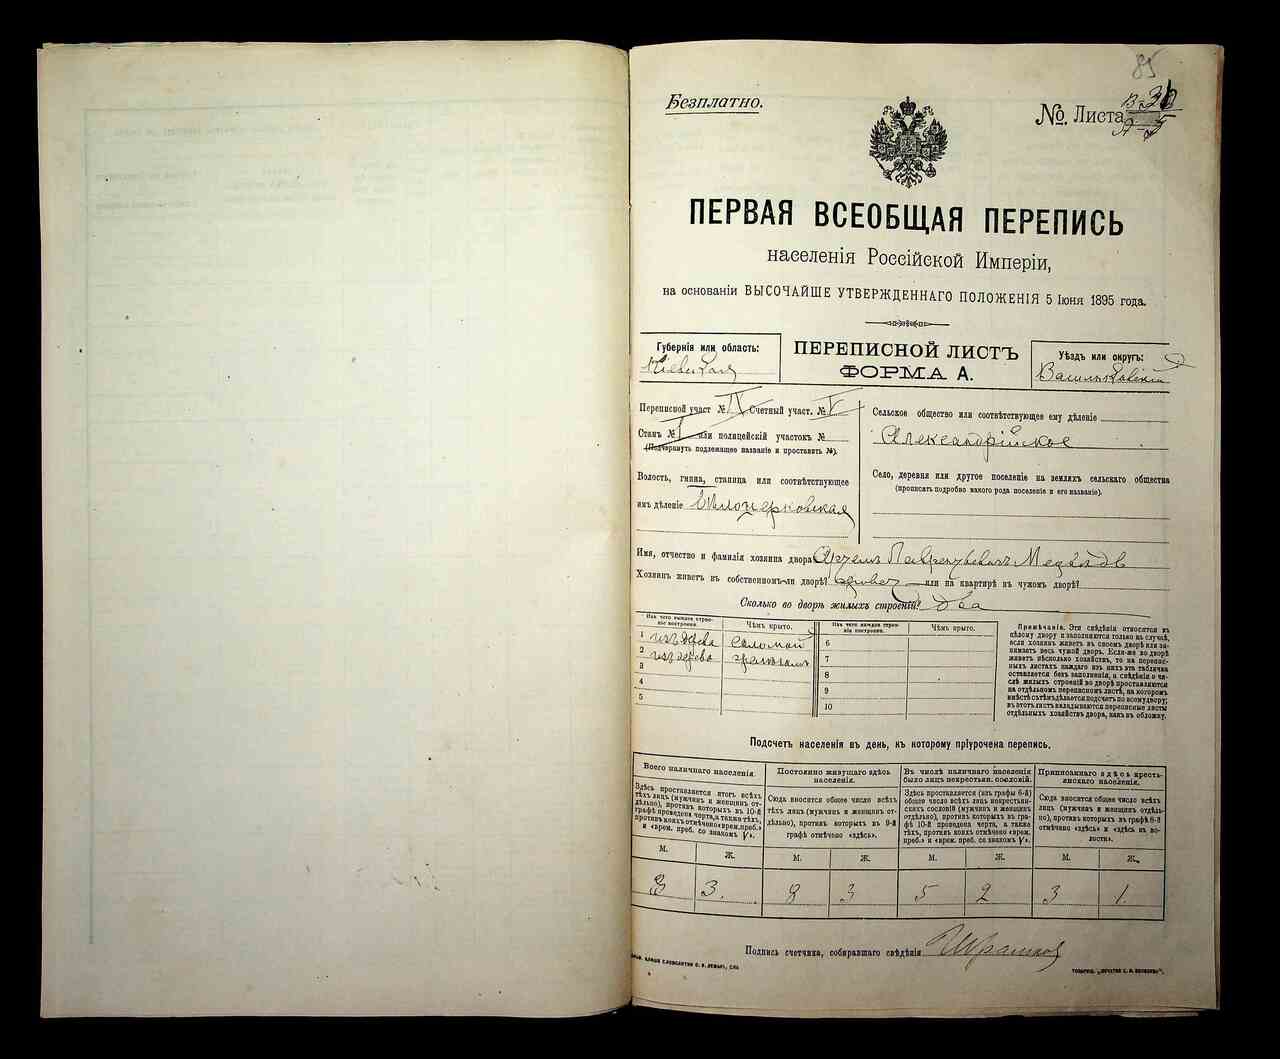 85
Безплатно.
№. Листа
ПЕРВАЯ ВСЕОБЩАЯ ПЕРЕПИСЬ
населенія Россійской Имперіи,
на основаніи ВЫСОЧАЙШЕ УТВЕРЖДЕННАГО ПОЛОЖЕНІЯ 5 Іюня 1895 года.
Губернія или область:
Кіевская
ПЕРЕПИСНОЙ ЛИСТЪ
ФОРМА А.
Уѣздъ или округъ:
Васильковскій
Переписной участ № IV Счетный участ. № V
Станъ № I или полицейскій участокъ №
(Подчеркнуть подлежащее названіе и проставить №).
Волость, гмина, станица или соотвѣтствующее
имъ дѣленіе Бѣлоцерковская
Сельское общество или соотвѣтствующее ему дѣленіе
Александрійское
Село, деревня или другое поселеніе на земляхъ сельскаго общества
(прописать подробно какого рода поселеніе и его названіе).
Имя, отчество и фамилія хозяина двора Артемъ Лаврентьевичъ Медвѣдовъ
Хозяинъ живетъ въ собственномъ-ли дворѣ? или на квартирѣ въ чужомъ дворѣ?
Сколько во дворѣ жилыхъ строеній? два
Изъ чего каждое строеніе построено. Чѣмъ крыто. Изъ чего каждое строеніе построено. Чѣмъ крыто.
1 изъ дерева соломой 6
2 изъ дерева желѣзомъ 7
3 8
4 9
5 10
Примѣчанія. Эти свѣдѣнія относятся къ
цѣлому двору и заполняются только въ случаѣ,
если хозяинъ живетъ въ своемъ дворѣ или занимаетъ
весь чужой дворъ. Если-же во дворѣ
живетъ нѣсколько хозяйствъ, то на переписныхъ
листахъ каждаго изъ нихъ эта табличка
оставляется безъ заполненія, а свѣдѣнія о числѣ
жилыхъ строеній во дворѣ проставляются
на отдѣльномъ переписномъ листѣ, на которомъ
вмѣстѣ съ тѣмъ дѣлается подсчетъ по всему двору;
въ этотъ листъ вкладываются переписные листы
отдѣльныхъ хозяйствъ двора, какъ въ обложку.
Подсчетъ населенія въ день, къ которому пріурочена перепись.
Всего наличнаго населенія.
Здѣсь проставляется итогъ всѣхъ
тѣхъ лицъ (мужчинъ и женщинъ отдѣльно),
противъ которыхъ въ 10-й
графѣ проведена черта, а также тѣхъ,
противъ коихъ отмѣчено «врем. преб.»
и «врем. преб. со знакомъ V».
Постоянно живущаго здѣсь
населенія.
Сюда вносится общее число всѣхъ
тѣхъ лицъ (мужчинъ и женщинъ отдѣльно),
противъ которыхъ въ 9-й
графѣ отмѣчено «здѣсь».
Въ числѣ наличнаго населенія
было лицъ некрестьян. сословій.
Здѣсь проставляется (изъ графы 6-й)
общее число всѣхъ лицъ некрестьянскихъ
сословій (мужчинъ и женщинъ
отдѣльно), противъ которыхъ въ графѣ
10-й проведена черта, а также
тѣхъ, противъ коихъ отмѣчено «врем.
преб.» и «врем. преб. со знакомъ V».
Приписаннаго здѣсь крестьянскаго
населенія.
Сюда вносится общее число всѣхъ
лицъ (мужчинъ и женщинъ отдѣльно),
противъ которыхъ въ графѣ 8-й
отмѣчено «здѣсь» и «здѣсь въ волости».
М. Ж. М. Ж. М. Ж. М. Ж.
8 3 8 3 5 2 3 1
Подпись счетчика, собиравшаго свѣдѣнія